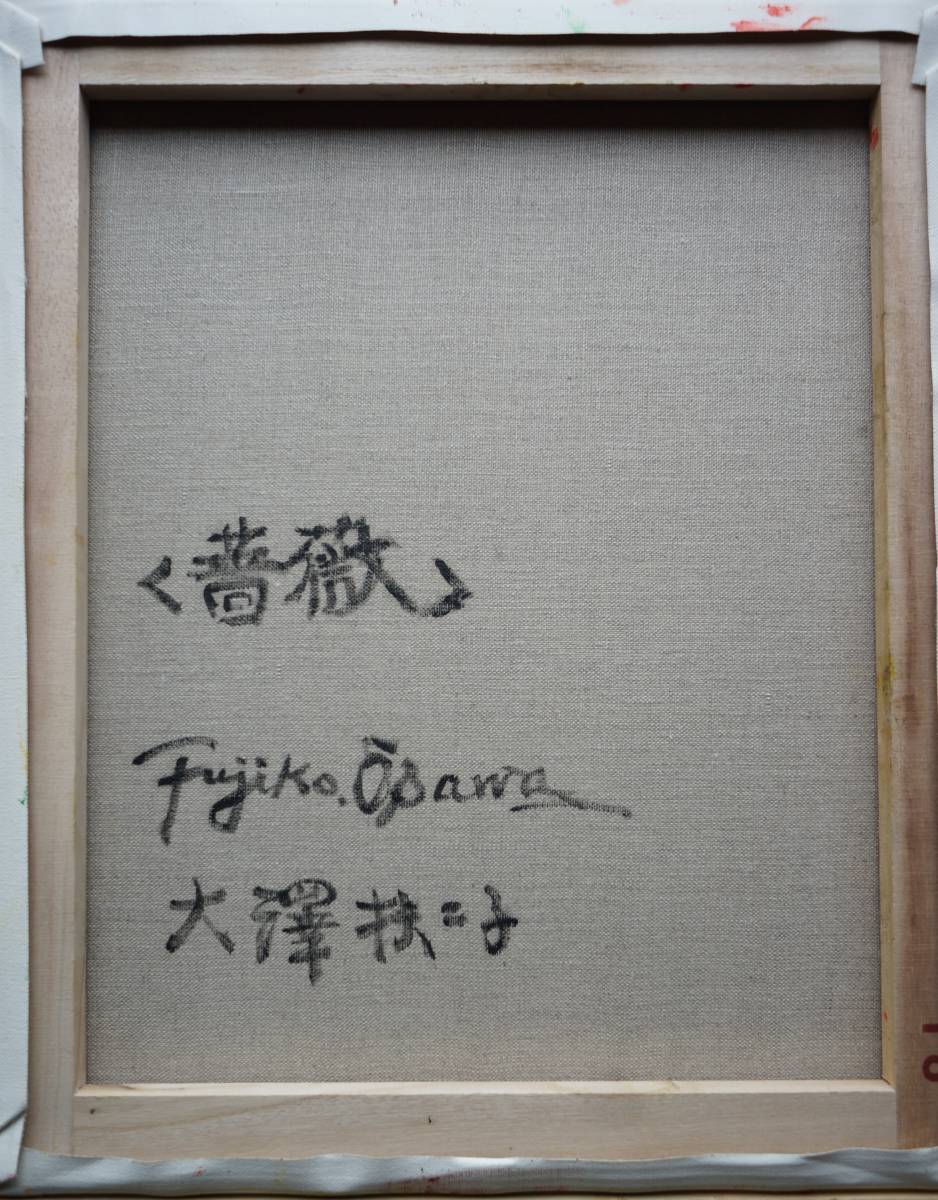 〈薔薇〉
Fujiko. Ōsawa
大澤扶二子